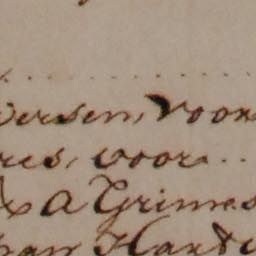 versen, voor
res, voor..
& a Grimes